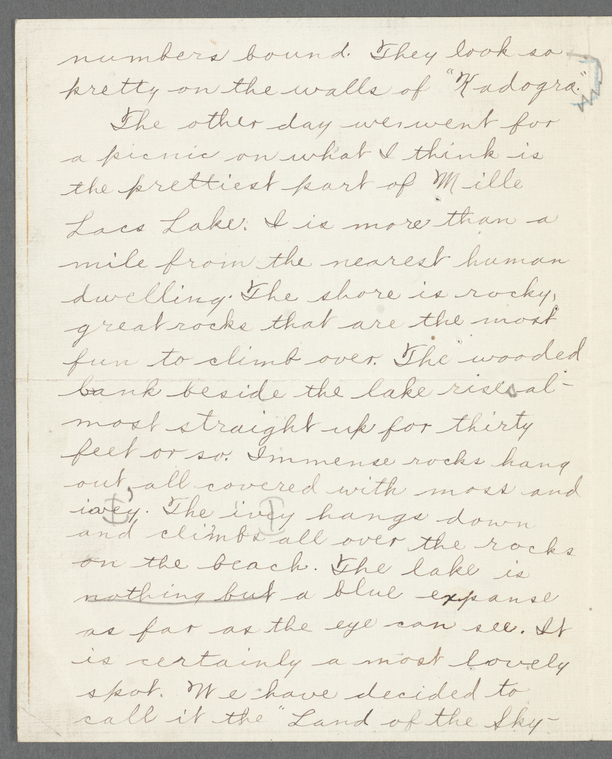 numbers bound. They look so
pretty on the walls of "Kadogra."
The other day we went for
a picnic on what I think is
the prettiest part of Mille
Lacs Lake. I is more than a
mile from the nearest human
dwelling. The shore is rocky,
great rocks that are the most
fun to climb over. The wooded
bank beside the lake rises al-
most straight up for thirty
feet or so. Immense rocks hang
out, all covered with moss and
ivey. The ivey hangs down
and climbs all over the rocks
on the beach. The lake is
nothing but a blue expanse
as far as the eye can see. It
is certainly a most lovely
spot. We have decided to
call it the "Land of the Sky-